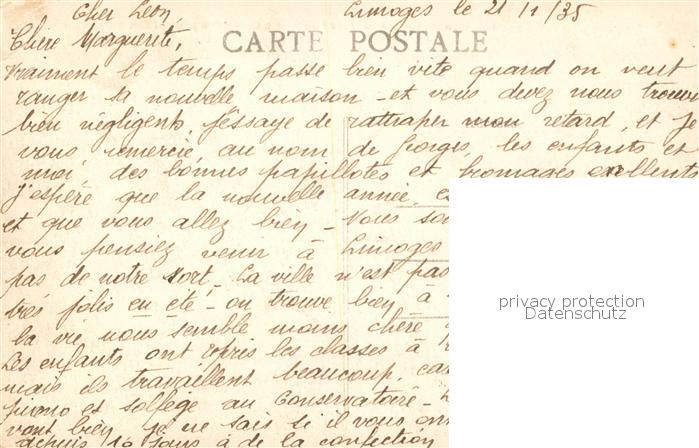 Cher Léon, Limoges le 21/1/35
Chère Marguerite,
CARTE POSTALE
Vraiment le temps passe bien vite quand on veut
ranger sa nouvelle maison - et vous devez nous trouver
bien négligents, j'essaye de rattraper mon retard, et je
vous remercie, au nom de Georges, les enfants et
moi, des bonnes papillotes et fromages excellents
J'espère que la nouvelle année,
et que vous allez bien - Nous
vous pensiez venir à Limoges
pas de notre sort. La ville n'est pas
très jolis en été - on trouve bien à
la vie nous semble moins chère
Les enfants ont repris les classes à
mais ils travaillent beaucoup,
piano et solfège au Conservatoire -
vont bien, je ne sais si il vous
depuis 10 jours à de la confection
privacy protection
Datenschutz